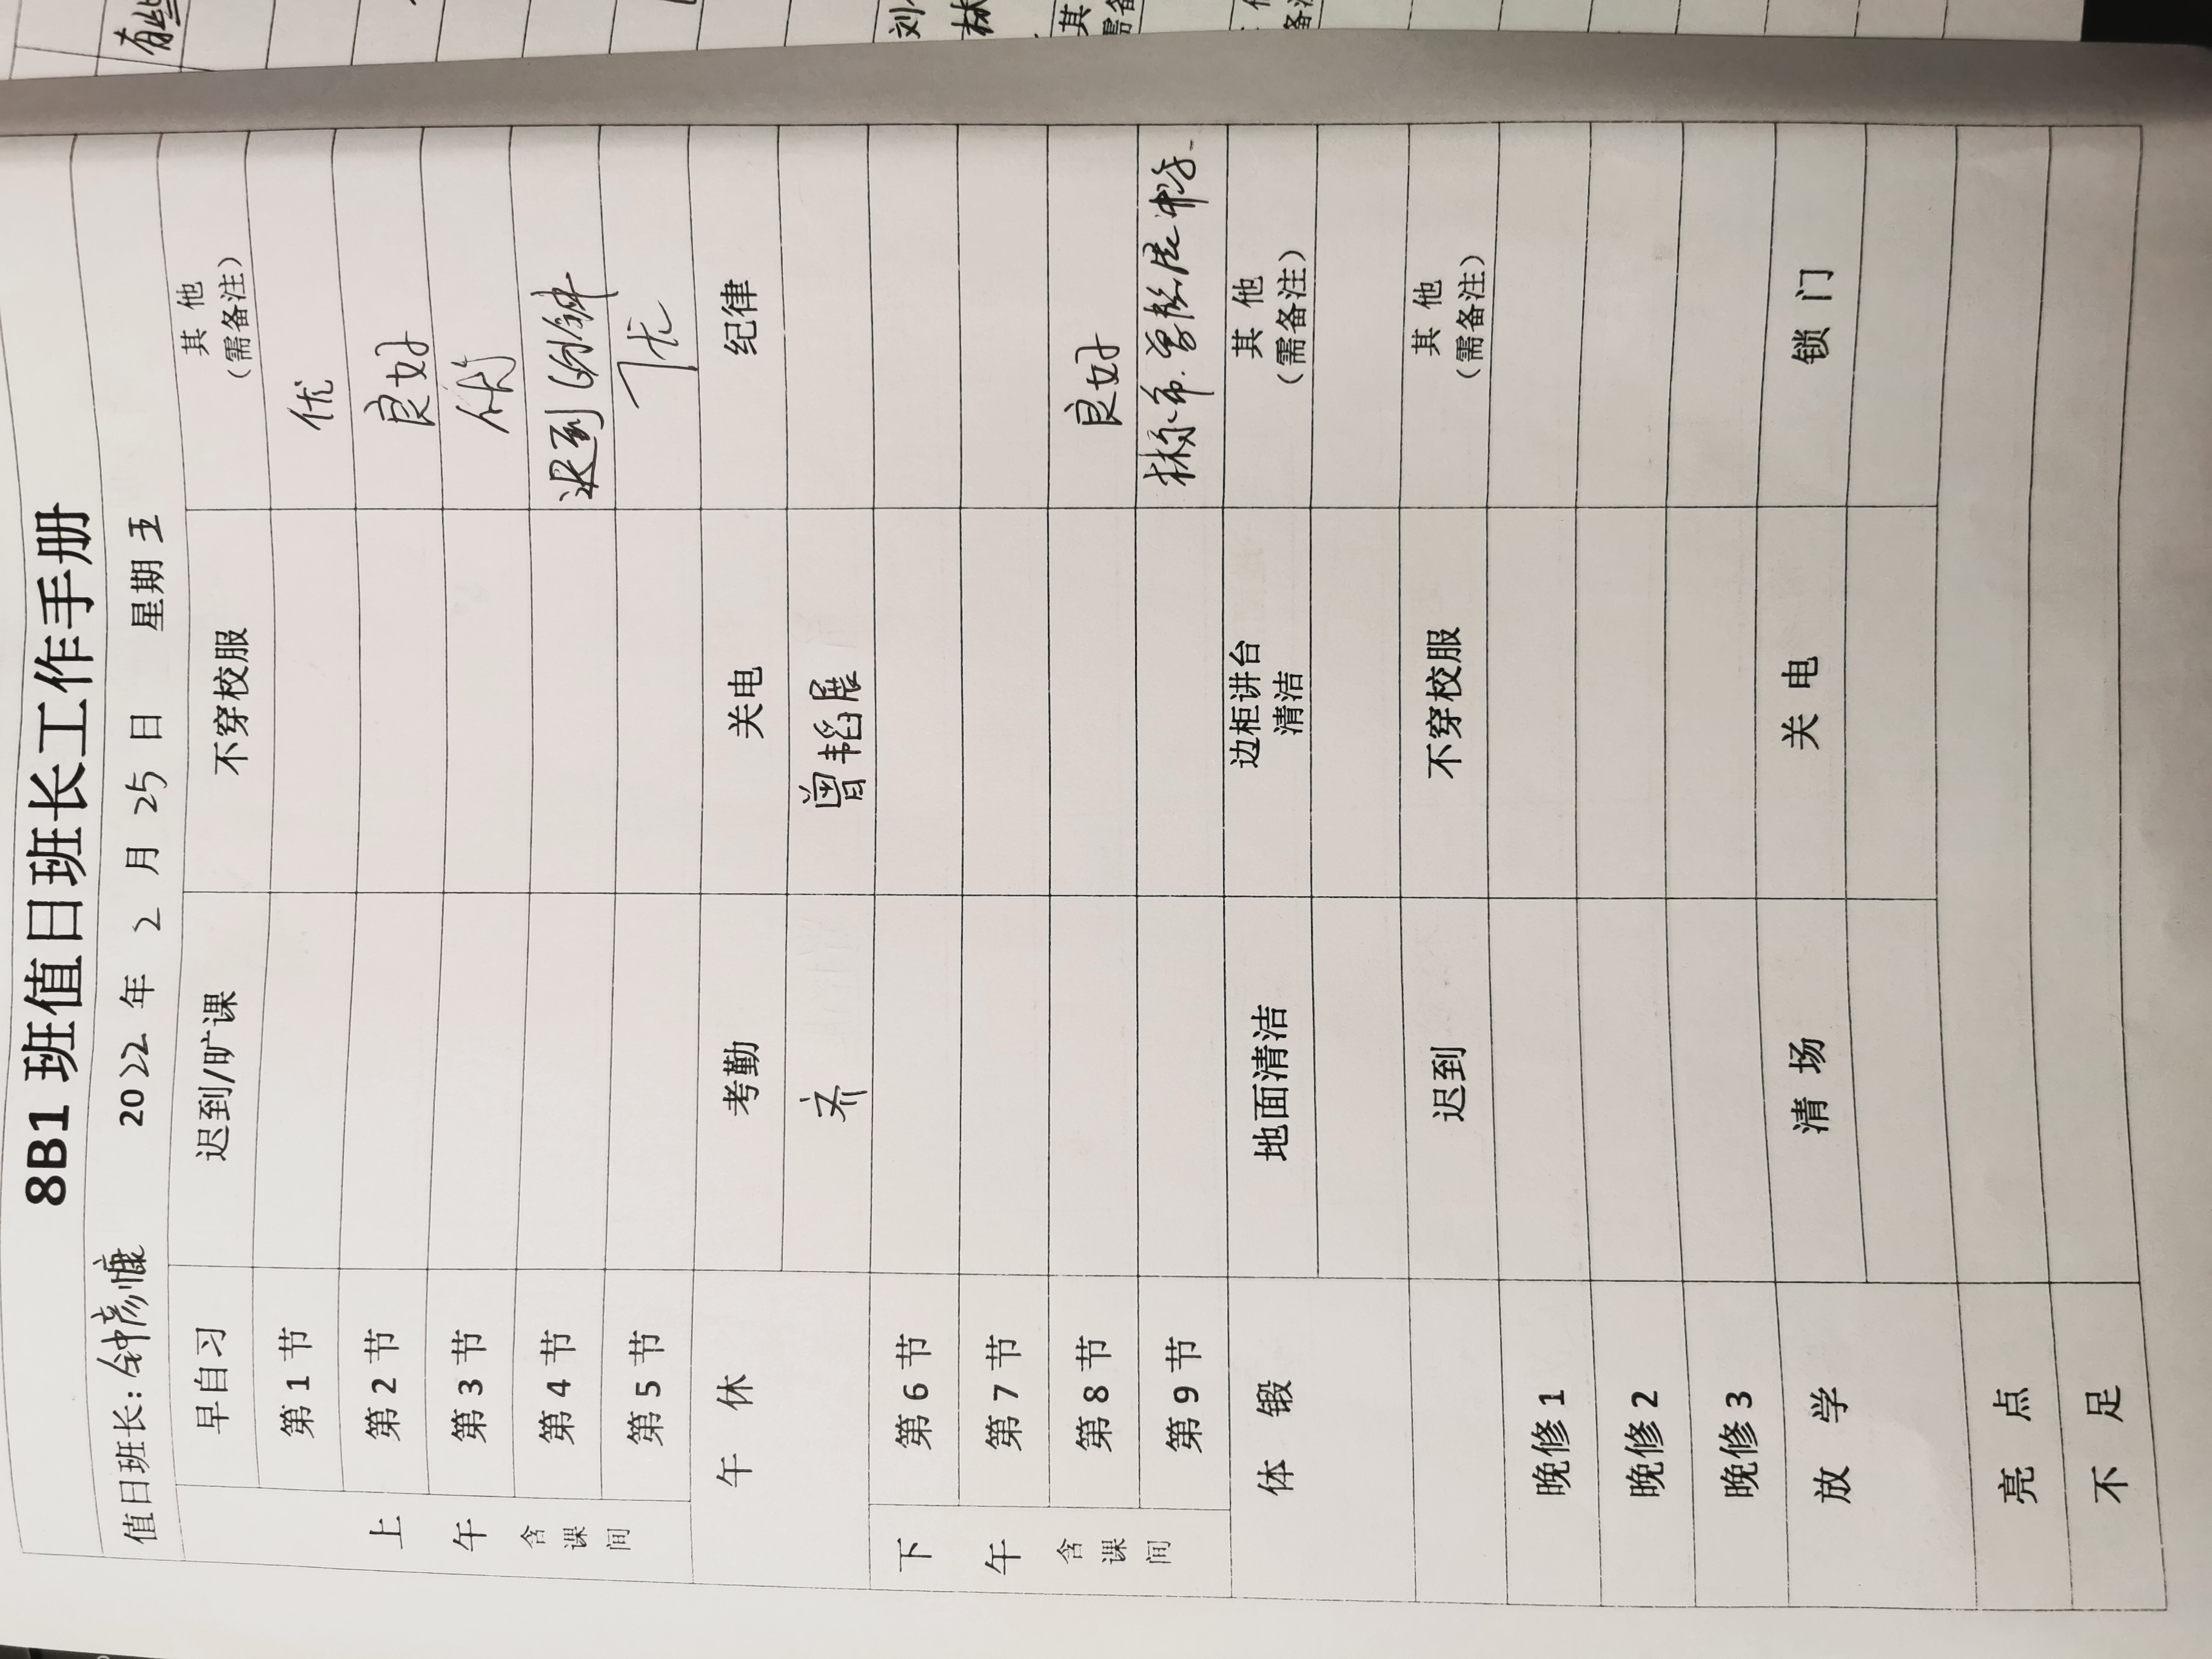 8B1 班值日班长工作手册
值日班长：钟彦慷 2022 年 2 月 25 日 星期五
早自习 迟到/旷课 不穿校服 其 他
（需备注）
上午
含课间
第 1 节 优
第 2 节 良好
第 3 节
第 4 节 迟到 6分钟
第 5 节 优
午 休 考勤 关电 纪律
齐 曾韬展
下午
含课间
第 6 节
第 7 节
第 8 节 良好
第 9 节
体 锻 地面清洁 边柜讲台
清洁
其 他
（需备注）
迟到 不穿校服 其 他
（需备注）
晚修 1
晚修 2
晚修 3
放 学 清 场 关 电 锁 门
亮 点
不 足
有些
刘
林
其